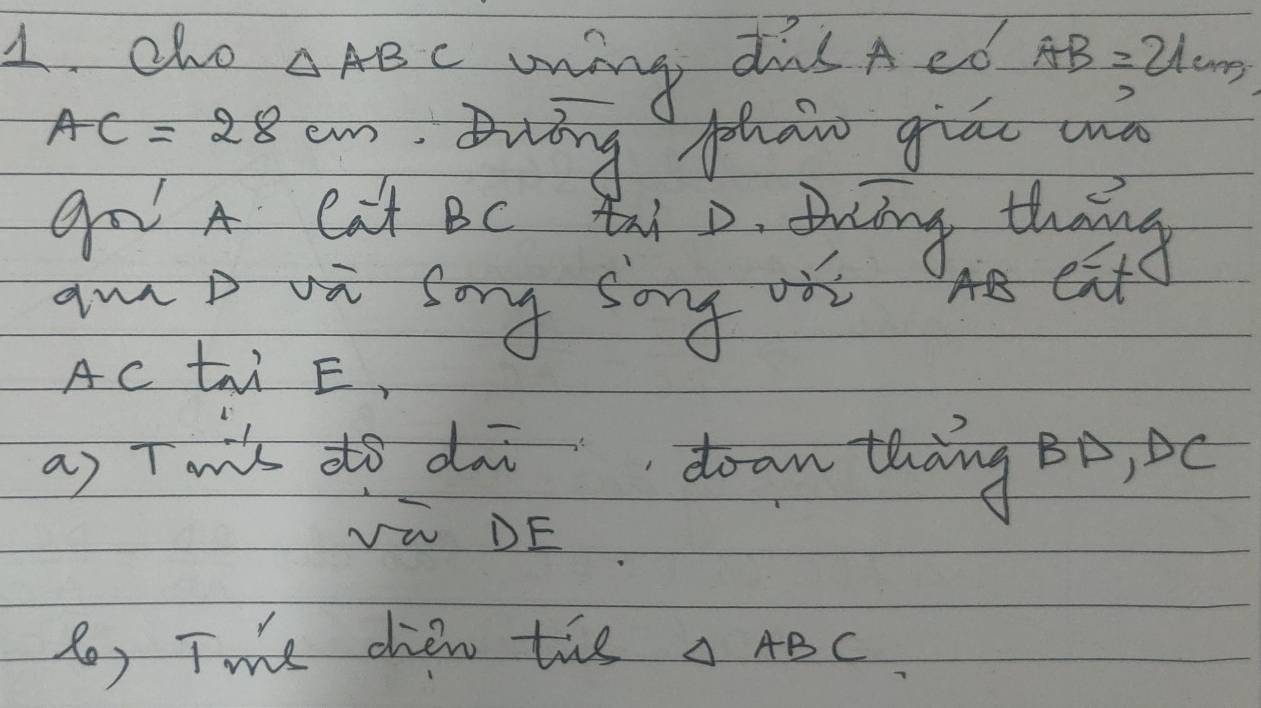 1. Cho △ABC vuông đỉnh A có AB = 21cm,
AC = 28 cm. Đường phân giác của
góc A cắt BC tại D. Đường thẳng
qua D và song song với AB cắt
AC tại E,
a) Tính độ dài đoạn thẳng BD, DC
và DE.
b) Tính diện tích △ ABC.